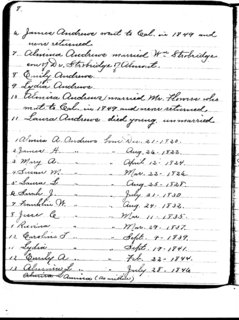 7.
6 James Andrews went to Cal. in 1849 and
never returned.
7. Almina Andrews married Wm Strobridge
son of Dr. Strobridge of Almont.
8 Emily Andrews
9 Lydia Andrews
10 Almira Andrews married Mr. Flowers who
went to Cal. in 1849 and never returned.
11 Laura Andrews died young unmarried
1 Almira A. Andrews born Dec. 21-1820.
2 James H. " " Aug. 26-1822.
3 Mary A. " " April 12-1824.
4 M. " " Mar. 22-1826
5 Laura L " " Aug. 25-1828.
6 Sarah J. " " July 21-1830
7 Franklin W. " " Aug. 24-1832.
8 Jesse C " " Mar 11-1835.
9 " " Mar. 29-1837.
10 Caroline L " " Sept. 9-1839.
11 Lydia " " Sept. 19-1841.
12 Emily A " " Feb. 22-1844.
13 L. " " July 28-1846
(As written)